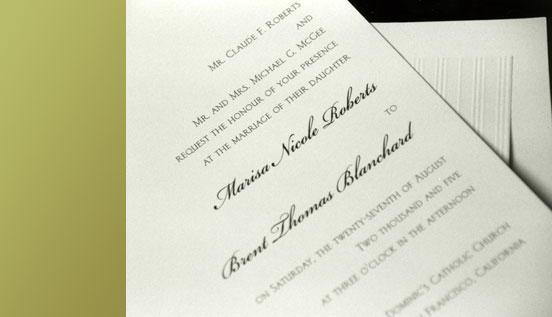 Mr. Claude F. Roberts
and
Mr. and Mrs. Michael G. McGee
request the honour of your presence
at the marriage of their daughter
Marisa Nicole Roberts
to
Brent Thomas Blanchard
on Saturday, the twenty-seventh of August
Two thousand and five
at three o'clock in the afternoon
Dominic's Catholic Church
Francisco, California